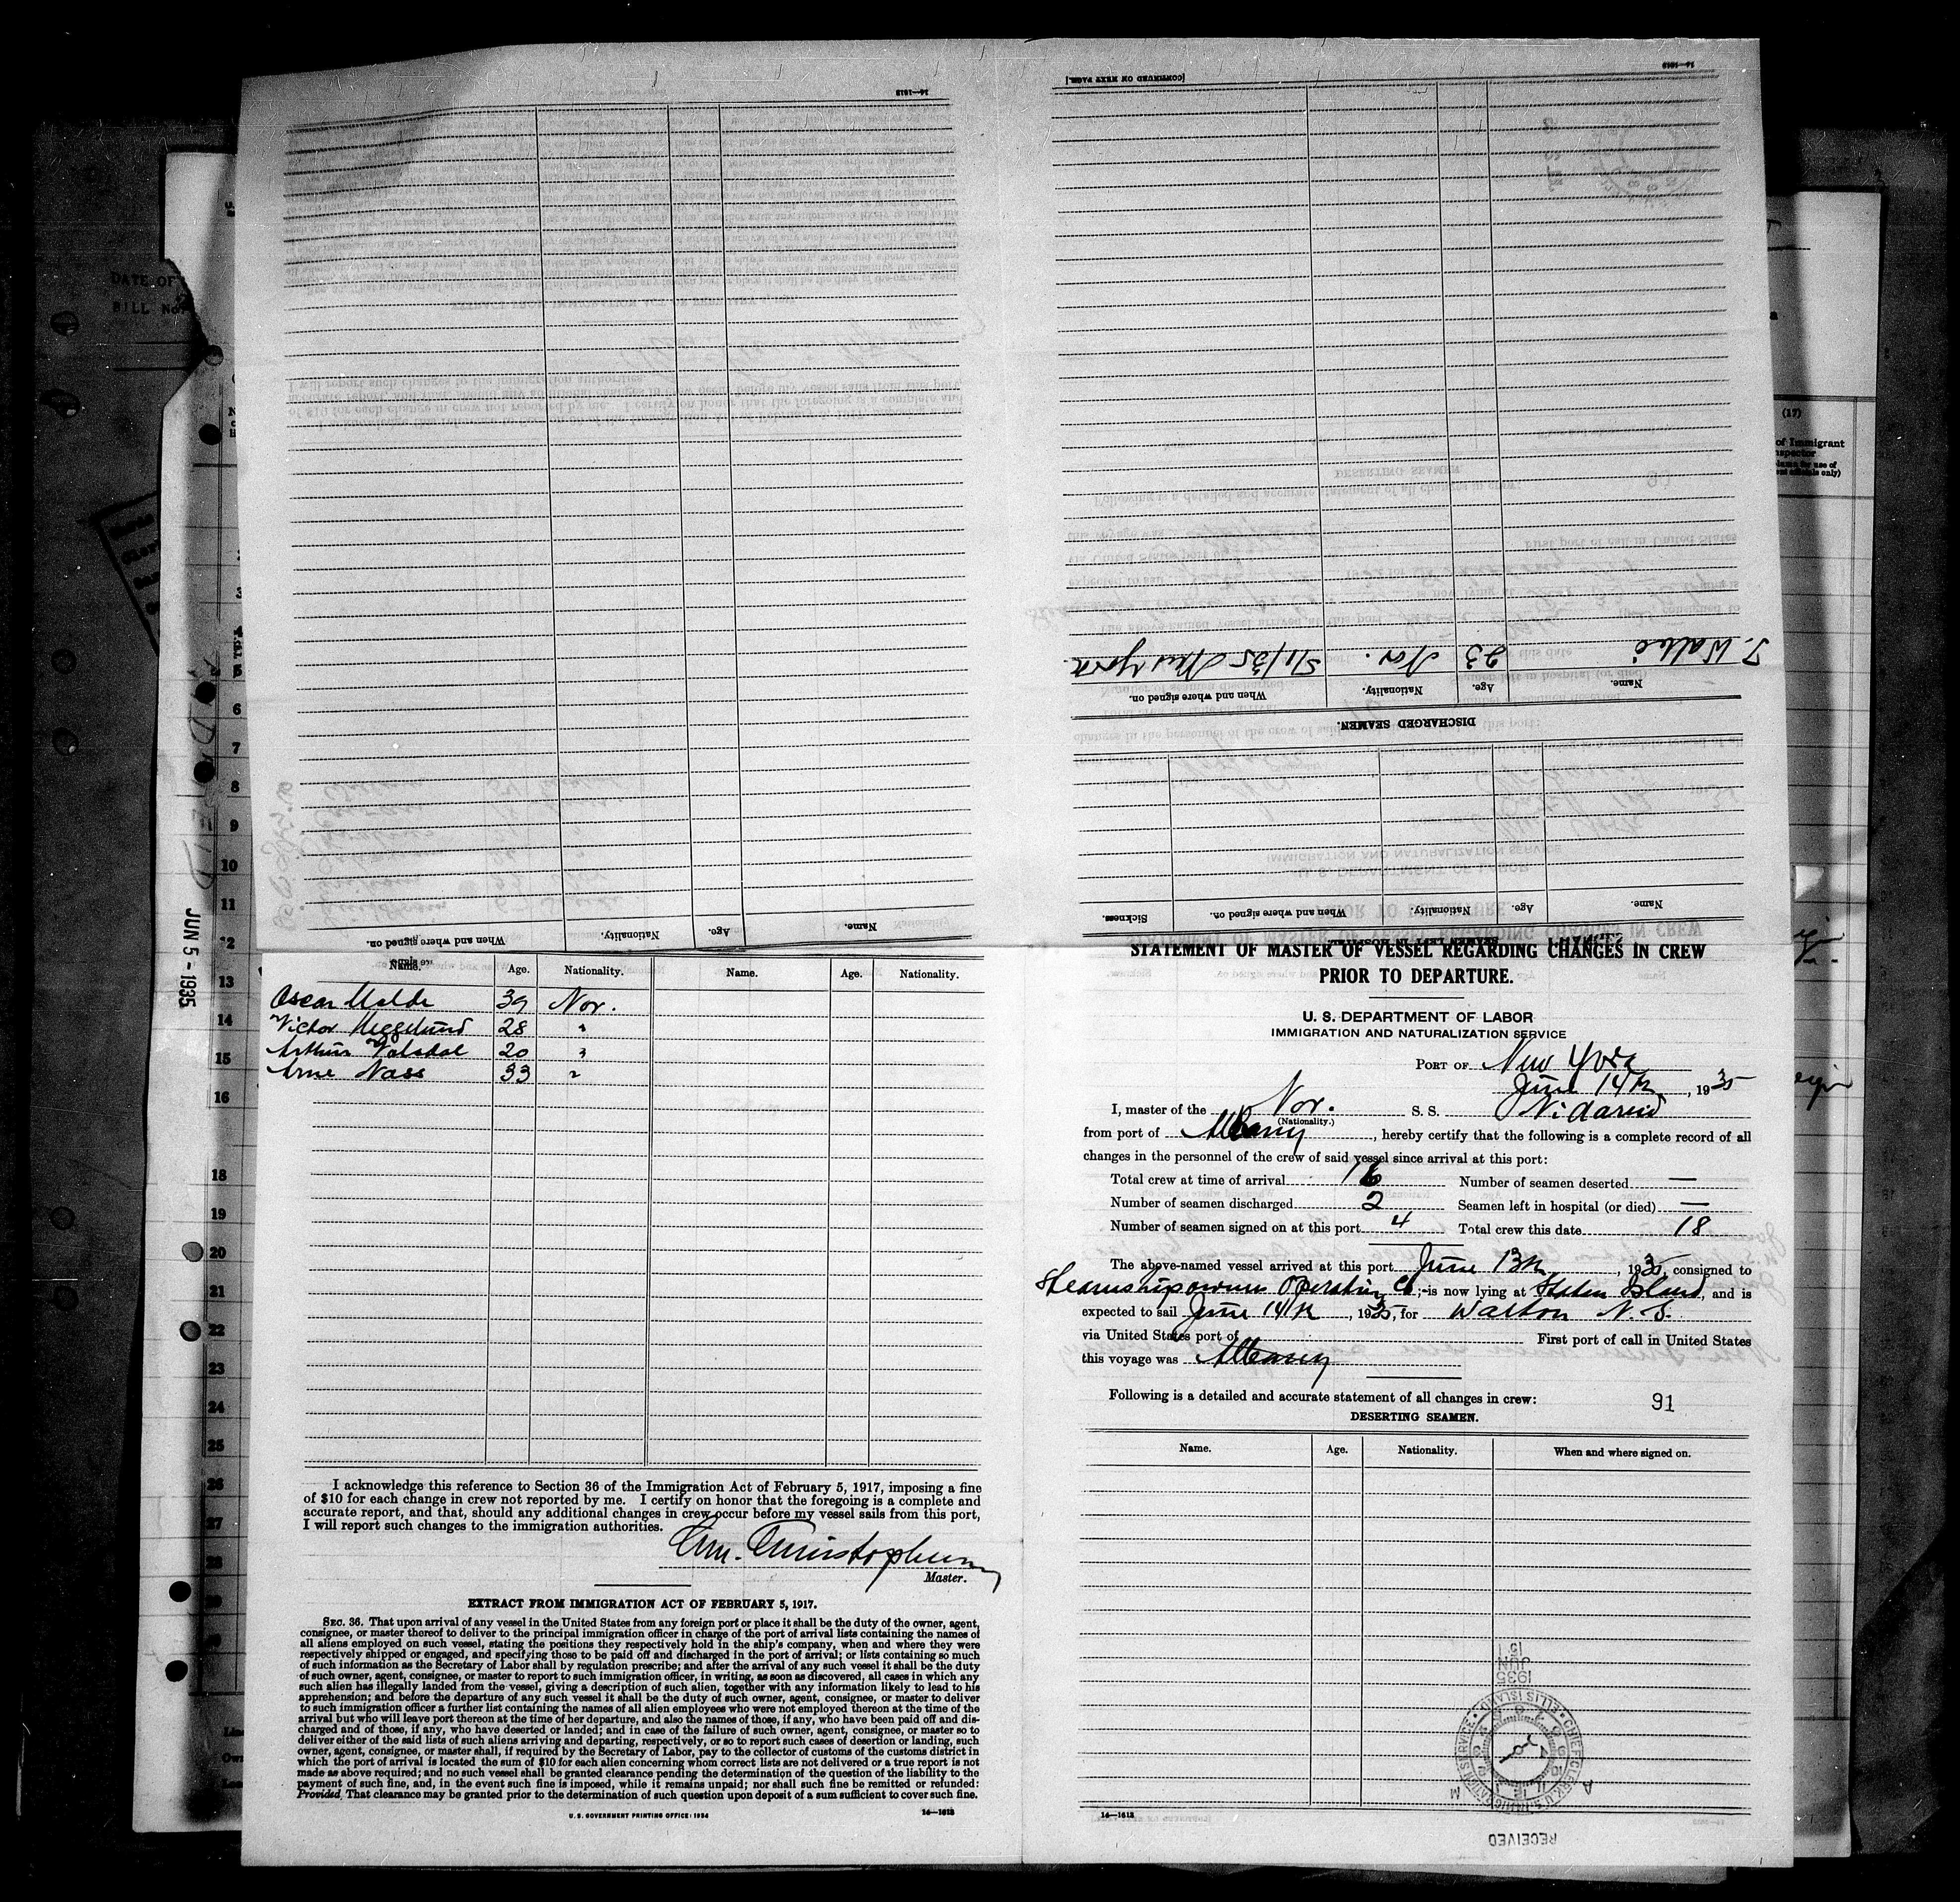 STATEMENT OF MASTER OF VESSEL REGARDING CHANGES IN CREW
PRIOR TO DEPARTURE.
U. S. DEPARTMENT OF LABOR
IMMIGRATION AND NATURALIZATION SERVICE
PORT OF New York
June 14th, 1935
I, master of the Nor. S. S.
(Nationality.)
from port of Albany, hereby certify that the following is a complete record of all
changes in the personnel of the crew of said vessel since arrival at this port:
Total crew at time of arrival 16 Number of seamen deserted —
Number of seamen discharged 2 Seamen left in hospital (or died) —
Number of seamen signed on at this port 4 Total crew this date 18
The above-named vessel arrived at this port June 13th, 1935, consigned to
Steamshipowners Operating Co; is now lying at Staten Island, and is
expected to sail June 14th, 1935, for Walton N. S.
via United States port of First port of call in United States
this voyage was Albany
Following is a detailed and accurate statement of all changes in crew:
91
DESERTING SEAMEN.
Name. Age. Nationality. When and where signed on.
14—1613
RECEIVED
1935 JUN 15
CHIEF CLERK U. S. IMMIGRATION SERVICE • ELLIS ISLAND •
A M
Name. Age. Nationality. When and where signed on. Sickness.
DISCHARGED SEAMEN.
Name. Age. Nationality. When and where signed on.
23 Nor. 5/1/35 New York
[CONTINUED ON NEXT PAGE.]
14—1613
Name. Age. Nationality. When and where signed on.
14—1613
Name. Age. Nationality. Name. Age. Nationality.
Oscar Melde 39 Nor.
Victor Heggelund 28 "
Arthur 20 "
Arne Nass 33 "
I acknowledge this reference to Section 36 of the Immigration Act of February 5, 1917, imposing a fine
of $10 for each change in crew not reported by me. I certify on honor that the foregoing is a complete and
accurate report, and that, should any additional changes in crew occur before my vessel sails from this port,
I will report such changes to the immigration authorities.
Master.
EXTRACT FROM IMMIGRATION ACT OF FEBRUARY 5, 1917.
SEC. 36. That upon arrival of any vessel in the United States from any foreign port or place it shall be the duty of the owner, agent,
consignee, or master thereof to deliver to the principal immigration officer in charge of the port of arrival lists containing the names of
all aliens employed on such vessel, stating the positions they respectively hold in the ship's company, when and where they were
respectively shipped or engaged, and specifying those to be paid off and discharged in the port of arrival; or lists containing so much
of such information as the Secretary of Labor shall by regulation prescribe; and after the arrival of any such vessel it shall be the duty
of such owner, agent, consignee, or master to report to such immigration officer, in writing, as soon as discovered, all cases in which any
such alien has illegally landed from the vessel, giving a description of such alien, together with any information likely to lead to his
apprehension; and before the departure of any such vessel it shall be the duty of such owner, agent, consignee, or master to deliver
to such immigration officer a further list containing the names of all alien employees who were not employed thereon at the time of the
arrival but who will leave port thereon at the time of her departure, and also the names of those, if any, who have been paid off and dis-
charged and of those, if any, who have deserted or landed; and in case of the failure of such owner, agent, consignee, or master so to
deliver either of the said lists of such aliens arriving and departing, respectively, or so to report such cases of desertion or landing, such
owner, agent, consignee, or master shall, if required by the Secretary of Labor, pay to the collector of customs of the customs district in
which the port of arrival is located the sum of $10 for each alien concerning whom correct lists are not delivered or a true report is not
made as above required; and no such vessel shall be granted clearance pending the determination of the question of the liability to the
payment of such fine, and, in the event such fine is imposed, while it remains unpaid; nor shall such fine be remitted or refunded:
Provided, That clearance may be granted prior to the determination of such question upon deposit of a sum sufficient to cover such fine.
U. S. GOVERNMENT PRINTING OFFICE: 1934
14—1613
DATE OF
BILL No.
JUN 5 - 1935
5
6
7
8
9
10
11
12
13
14
15
16
18
19
20
21
22
23
24
25
26
27
28
(17)
of Immigrant